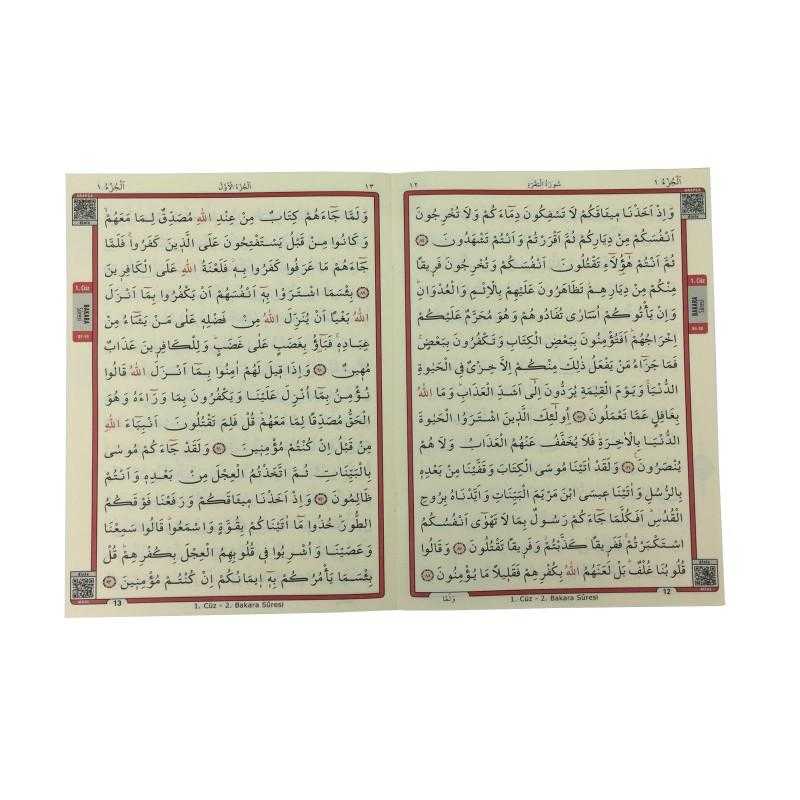 اَلْجُزْءُ ١
سُورَةُ الْبَقَرَةِ
١٢
وَاِذْ اَخَذْنَا مٖيثَاقَكُمْ لَا تَسْفِكُونَ دِمَٓاءَكُمْ وَلَا تُخْرِجُونَ
اَنْفُسَكُمْ مِنْ دِيَارِكُمْ ثُمَّ اَقْرَرْتُمْ وَاَنْتُمْ تَشْهَدُونَ
ثُمَّ اَنْتُمْ هٰٓؤُ۬لَٓاءِ تَقْتُلُونَ اَنْفُسَكُمْ وَتُخْرِجُونَ فَرٖيقًا
مِنْكُمْ مِنْ دِيَارِهِمْ تَظَاهَرُونَ عَلَيْهِمْ بِالْاِثْمِ وَالْعُدْوَانِ
وَاِنْ يَأْتُوكُمْ اُسَارٰى تُفَادُوهُمْ وَهُوَ مُحَرَّمٌ عَلَيْكُمْ
اِخْرَاجُهُمْ اَفَتُؤْمِنُونَ بِبَعْضِ الْكِتَابِ وَتَكْفُرُونَ بِبَعْضٍ
فَمَا جَزَٓاءُ مَنْ يَفْعَلُ ذٰلِكَ مِنْكُمْ اِلَّا خِزْيٌ فِي الْحَيٰوةِ
الدُّنْيَا وَيَوْمَ الْقِيٰمَةِ يُرَدُّونَ اِلٰٓى اَشَدِّ الْعَذَابِ وَمَا اللّٰهُ
بِغَافِلٍ عَمَّا تَعْمَلُونَ اُو۬لٰٓئِكَ الَّذٖينَ اشْتَرَوُا الْحَيٰوةَ
الدُّنْيَا بِالْاٰخِرَةِ فَلَا يُخَفَّفُ عَنْهُمُ الْعَذَابُ وَلَا هُمْ
يُنْصَرُونَ وَلَقَدْ اٰتَيْنَا مُوسَى الْكِتَابَ وَقَفَّيْنَا مِنْ بَعْدِهٖ
بِالرُّسُلِ وَاٰتَيْنَا عٖيسَى ابْنَ مَرْيَمَ الْبَيِّنَاتِ وَاَيَّدْنَاهُ بِرُوحِ
الْقُدُسِ اَفَكُلَّمَا جَٓاءَكُمْ رَسُولٌ بِمَا لَا تَهْوٰٓى اَنْفُسُكُمُ
اسْتَكْبَرْتُمْ فَفَرٖيقًا كَذَّبْتُمْ وَفَرٖيقًا تَقْتُلُونَ وَقَالُوا
قُلُوبُنَا غُلْفٌ بَلْ لَعَنَهُمُ اللّٰهُ بِكُفْرِهِمْ فَقَلٖيلًا مَا يُؤْمِنُونَ
1. Cüz
BAKARA
Sûresi
12
1. Cüz - 2. Bakara Sûresi
وَلَمَّا
١٣
اَلْجُزْءُ الْاَوَّلُ
اَلْجُزْءُ ١
وَلَمَّا جَٓاءَهُمْ كِتَابٌ مِنْ عِنْدِ اللّٰهِ مُصَدِّقٌ لِمَا مَعَهُمْ
وَكَانُوا مِنْ قَبْلُ يَسْتَفْتِحُونَ عَلَى الَّذٖينَ كَفَرُوا فَلَمَّا
جَٓاءَهُمْ مَا عَرَفُوا كَفَرُوا بِهٖ فَلَعْنَةُ اللّٰهِ عَلَى الْكَافِرٖينَ
بِئْسَمَا اشْتَرَوْا بِهٖٓ اَنْفُسَهُمْ اَنْ يَكْفُرُوا بِمَٓا اَنْزَلَ
اللّٰهُ بَغْيًا اَنْ يُنَزِّلَ اللّٰهُ مِنْ فَضْلِهٖ عَلٰى مَنْ يَشَٓاءُ مِنْ
عِبَادِهٖ فَبَٓاؤُ۫ بِغَضَبٍ عَلٰى غَضَبٍ وَلِلْكَافِرٖينَ عَذَابٌ
مُهٖينٌ وَاِذَا قٖيلَ لَهُمْ اٰمِنُوا بِمَٓا اَنْزَلَ اللّٰهُ قَالُوا
نُؤْمِنُ بِمَٓا اُنْزِلَ عَلَيْنَا وَيَكْفُرُونَ بِمَا وَرَٓاءَهُ وَهُوَ
الْحَقُّ مُصَدِّقًا لِمَا مَعَهُمْ قُلْ فَلِمَ تَقْتُلُونَ اَنْبِيَٓاءَ اللّٰهِ
مِنْ قَبْلُ اِنْ كُنْتُمْ مُؤْمِنٖينَ وَلَقَدْ جَٓاءَكُمْ مُوسٰى
بِالْبَيِّنَاتِ ثُمَّ اتَّخَذْتُمُ الْعِجْلَ مِنْ بَعْدِهٖ وَاَنْتُمْ
ظَالِمُونَ وَاِذْ اَخَذْنَا مٖيثَاقَكُمْ وَرَفَعْنَا فَوْقَكُمُ
الطُّورَ خُذُوا مَٓا اٰتَيْنَاكُمْ بِقُوَّةٍ وَاسْمَعُوا قَالُوا سَمِعْنَا
وَعَصَيْنَا وَاُشْرِبُوا فٖي قُلُوبِهِمُ الْعِجْلَ بِكُفْرِهِمْ قُلْ
بِئْسَمَا يَأْمُرُكُمْ بِهٖٓ اٖيمَانُكُمْ اِنْ كُنْتُمْ مُؤْمِنٖينَ
1. Cüz
BAKARA
Sûresi
13
1. Cüz - 2. Bakara Sûresi